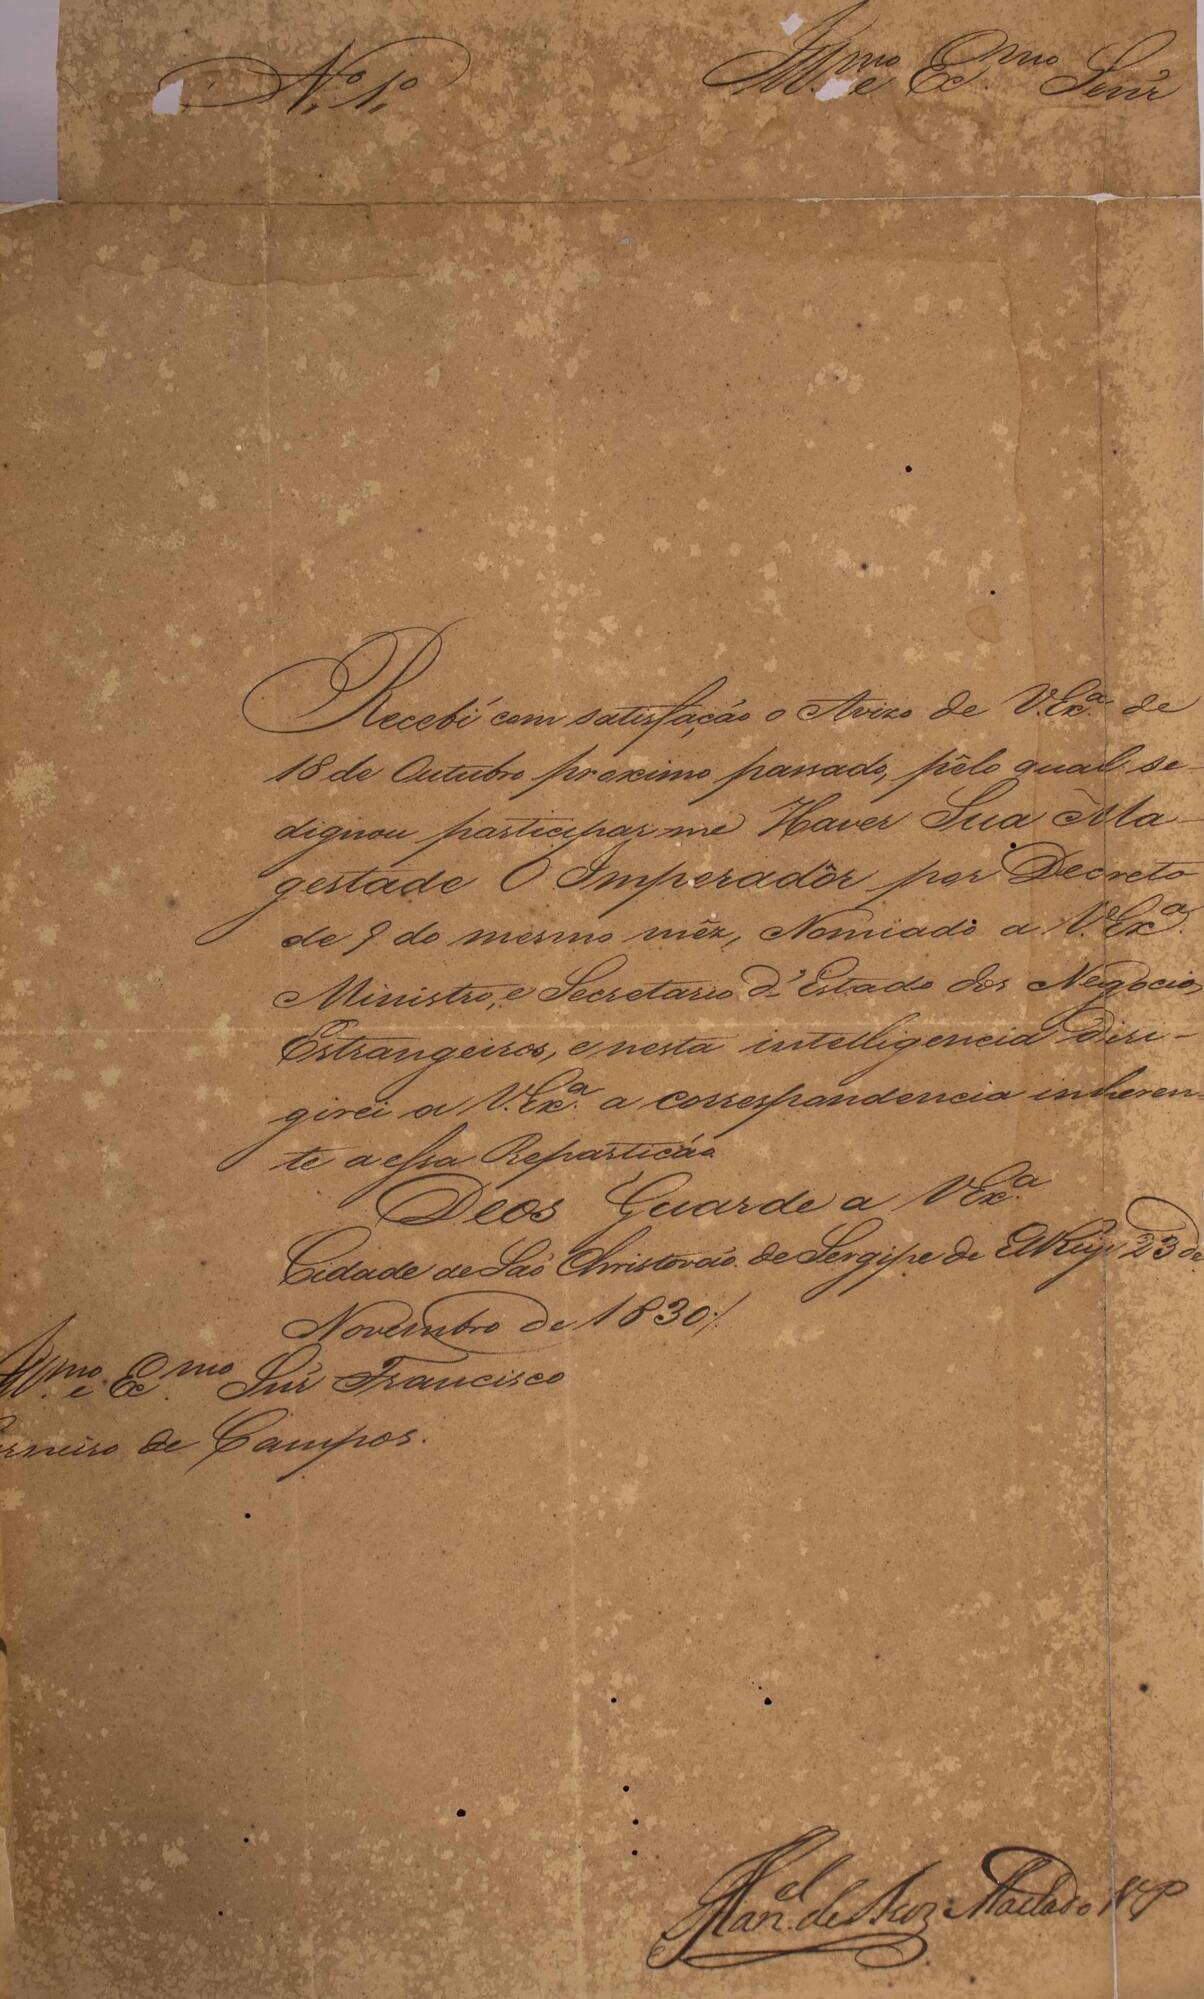 N.º 1.º
Ill.mo e Ex.mo Senr
Recebí com satisfação o Avizo de V.Ex.ª de
18 de Outubro proximo passado, pêlo qual se
dignou participar-me Haver Sua Ma-
gestade O Imperadôr por Decreto
de 9 do mesmo mêz, Nomiado a V.Ex.ª
Ministro, e Secretario d'Estado dos Negocios
Estrangeiros, e nesta intelligencia diri-
girei a V.Ex.ª a correspondencia inheren-
te a essa Repartição
Deos Guarde a V.Ex.ª
Cidade de São Christovão de Sergipe de ElRey 23 de
Novembro de 1830./
Ill.mo e Ex.mo Snr Francisco
Carneiro de Campos.
Man.el de Machado